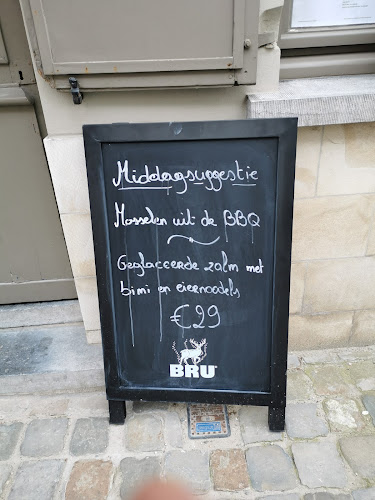 Middagsuggestie
Mosselen uit de BBQ
Geglaceerde zalm met
bimi en eiernoodels
€29
BRU